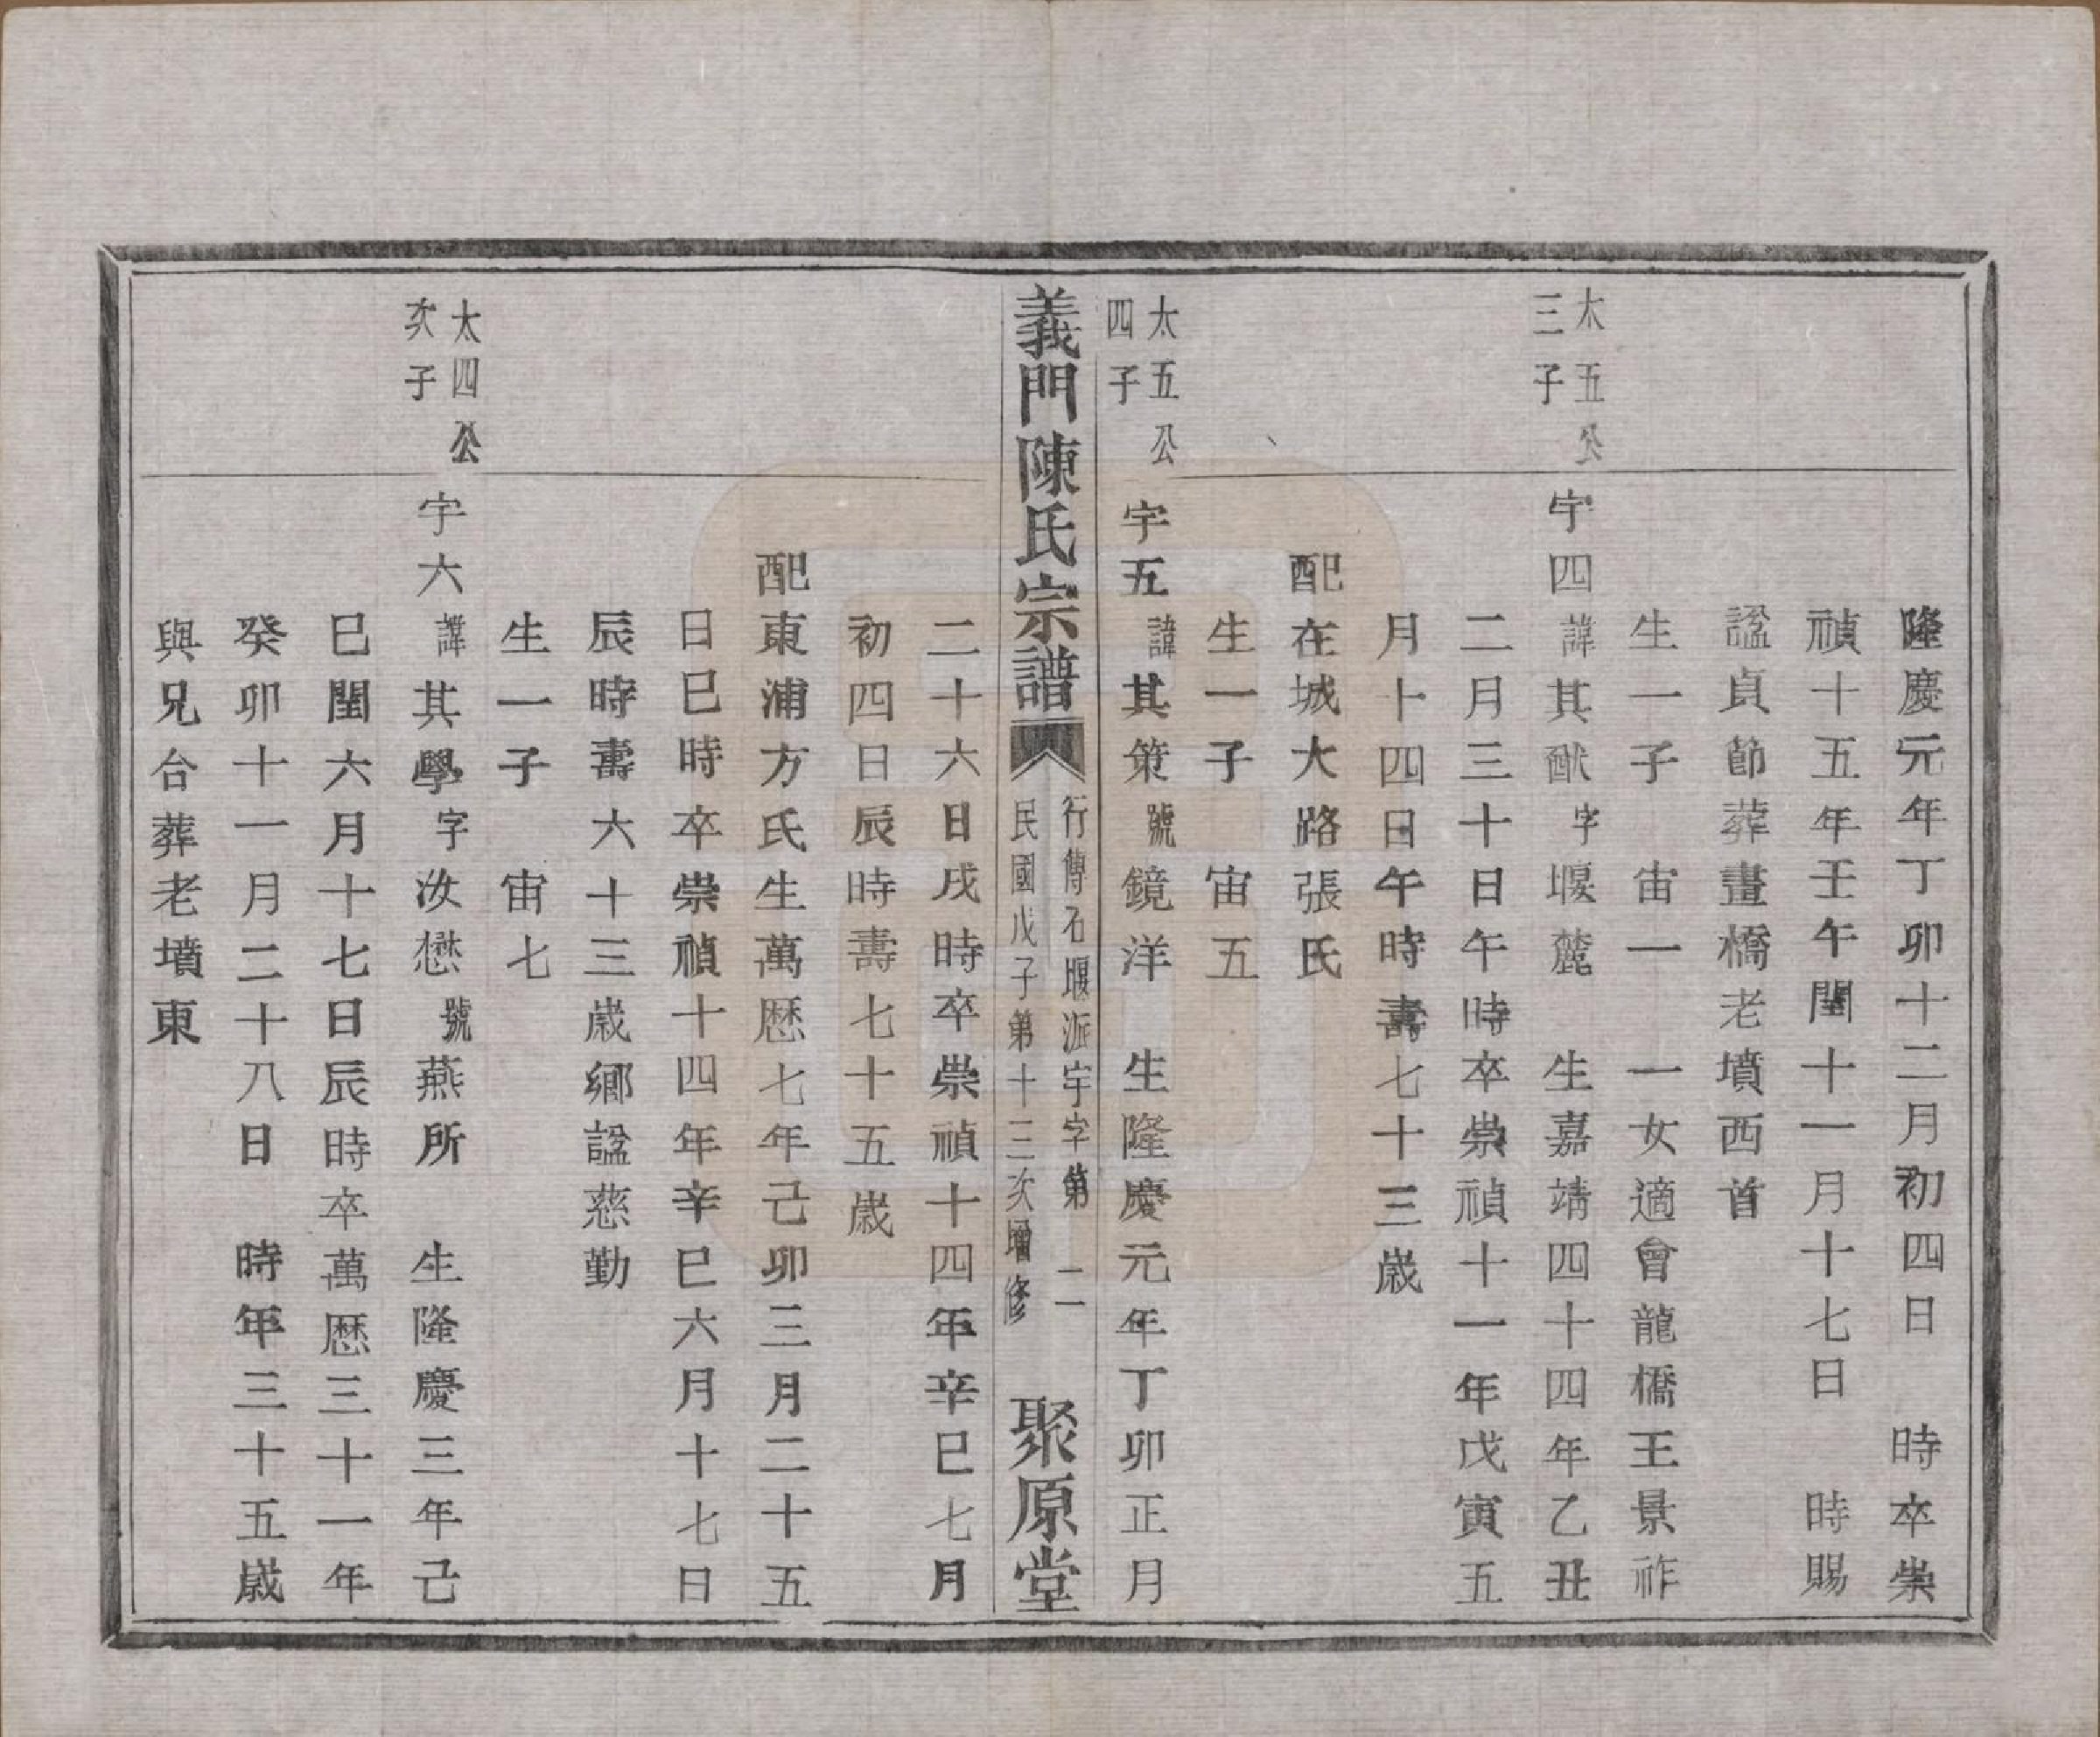 隆慶元年丁卯十二月初四日　時卒崇
禎十五年壬午閏十一月十七日　時賜
諡貞節葬畫橋老墳西首
生一子　宙一　一女適會龍橋王景祚
太五公
三子
宇四諱其猷字堰麓　生嘉靖四十四年乙丑
二月三十日午時卒崇禎十一年戊寅五
月十四日午時壽七十三歲
配在城大路張氏
生一子　宙五
太五公
四子
宇五諱其策號鏡洋　生隆慶元年丁卯正月
義門陳氏宗譜
行傳石堰派宇字第　二
民國戊子第十三次增修
聚原堂
二十六日戌時卒崇禎十四年辛巳七月
初四日辰時壽七十五歲
配東浦方氏生萬歷七年己卯三月二十五
日巳時卒崇禎十四年辛巳六月十七日
辰時壽六十三歲鄉諡慈勤
生一子　宙七
太四公
次子
宇六諱其學字汝懋號燕所　生隆慶三年己
巳閏六月十七日辰時卒萬歷三十一年
癸卯十一月二十八日　時年三十五歲
與兄合葬老墳東